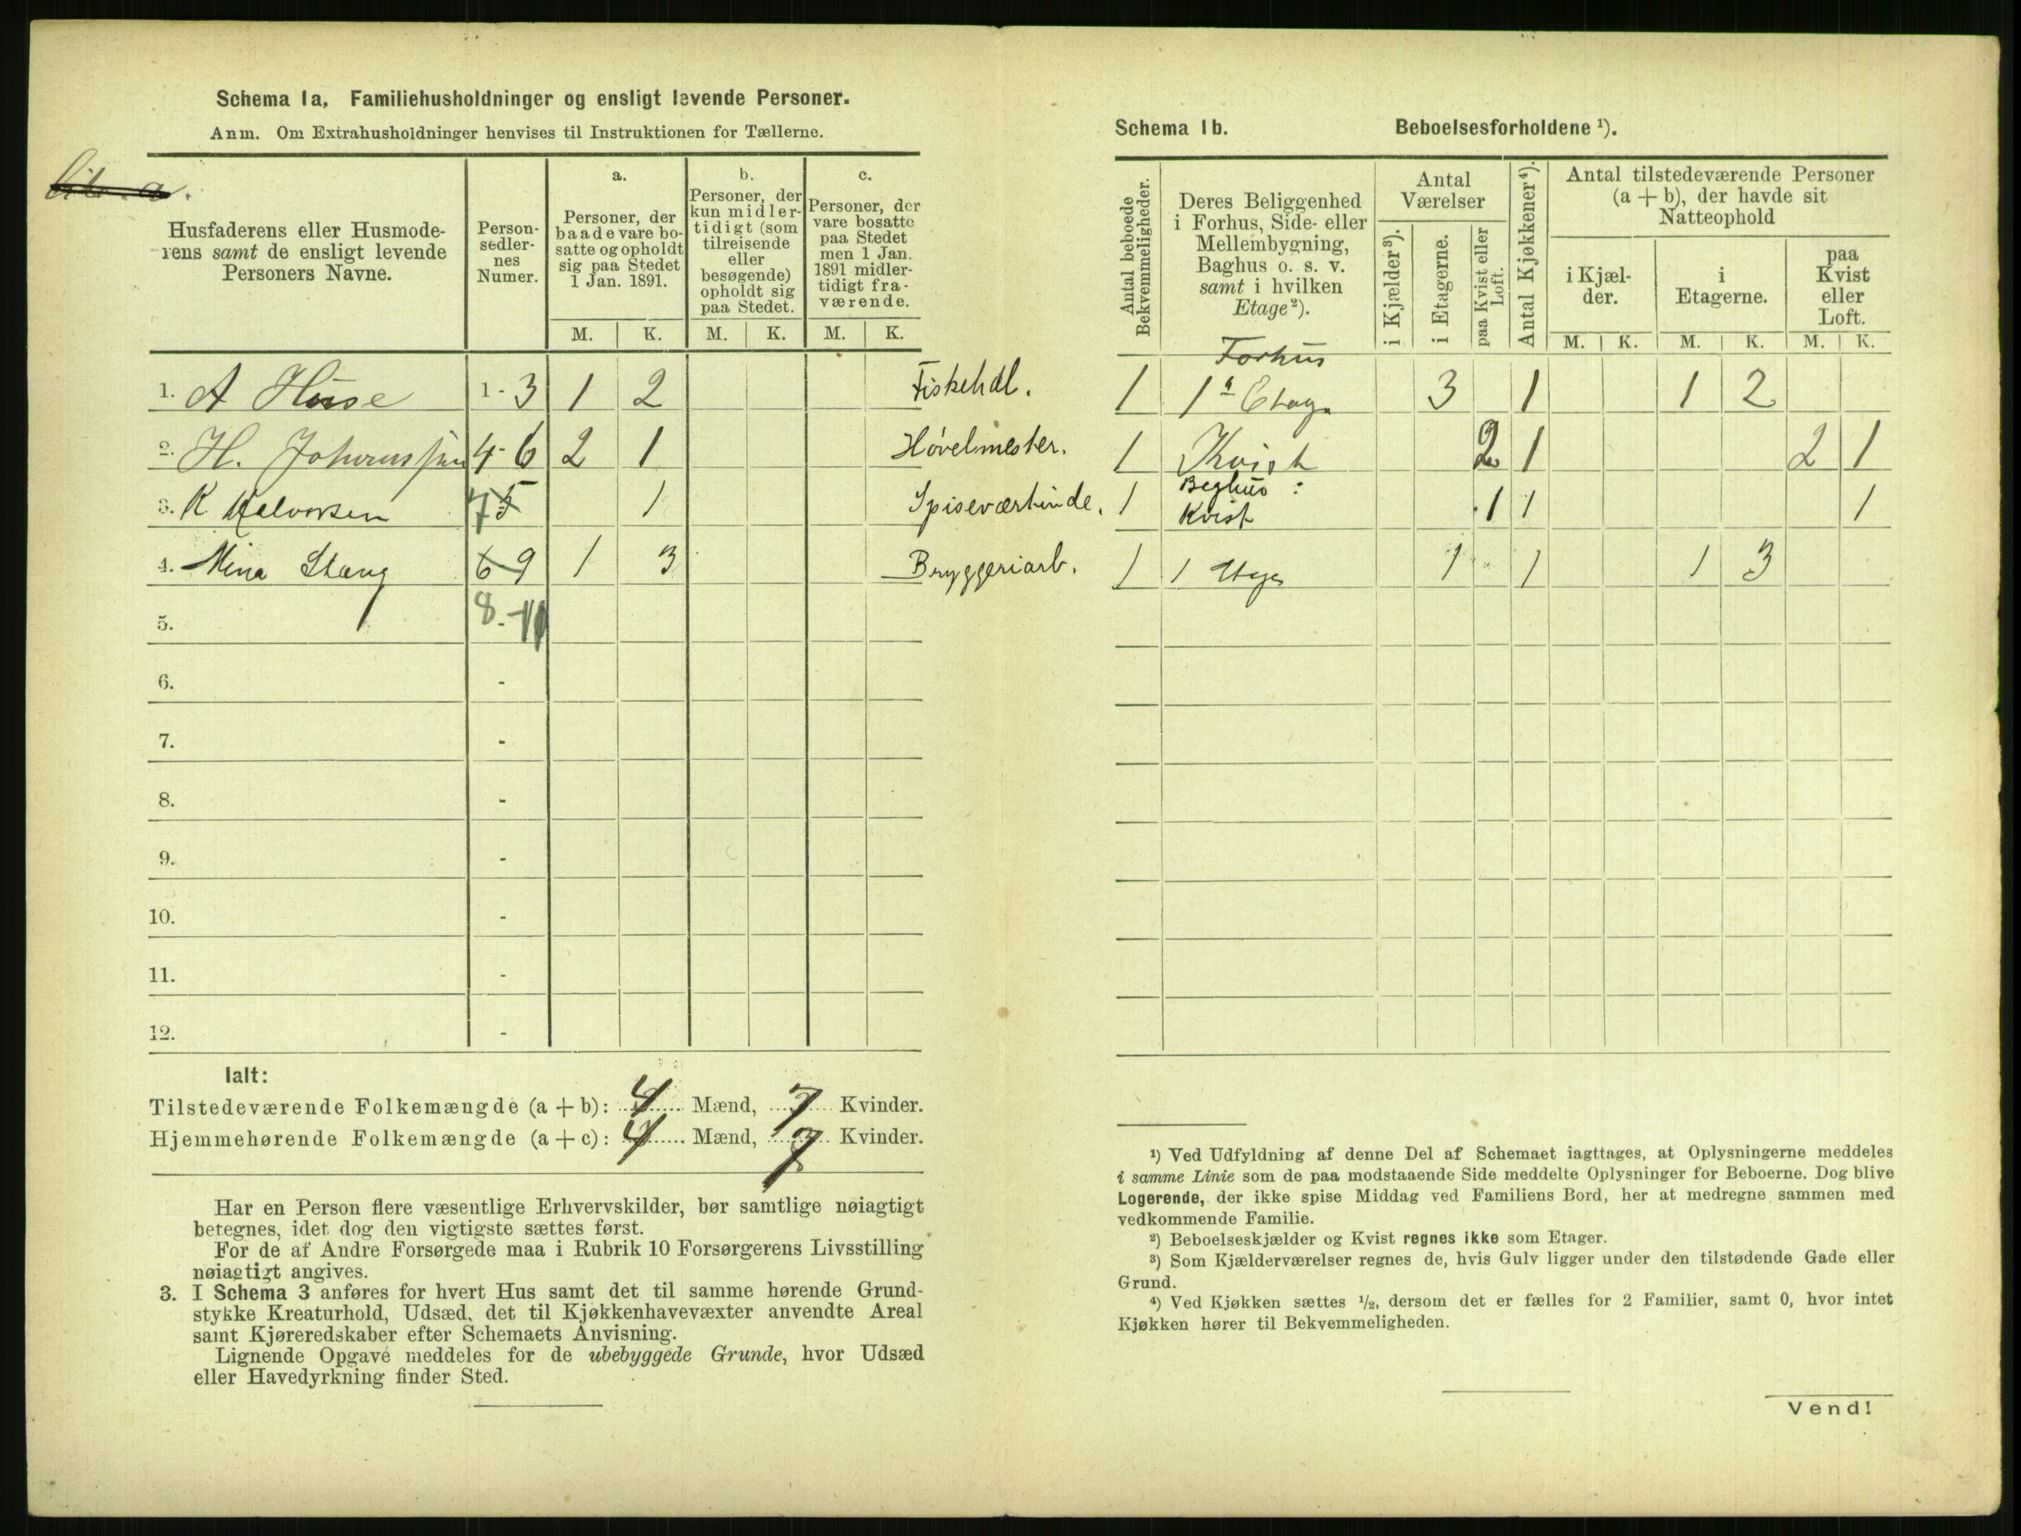 Schema 1a, Familiehusholdninger og ensligt levende Personer.
Anm. Om Extrahusholdninger henvises til Instruktionen for Tællerne.
Husfaderens eller Husmode-
rens samt de ensligt levende
Personers Navne.
Person-
sedler-
nes
Numer.
a.
Personer, der
baade vare bo-
satte og opholdt
sig paa Stedet
1 Jan. 1891.
b.
Personer, der
kun midler-
tidigt (som
tilreisende
eller
besøgende)
opholdt sig
paa Stedet.
c.
Personer, der
vare bosatte
paa Stedet
men 1 Jan.
1891 midler-
tidigt fra-
værende.
M. K. M. K. M. K.
1. A Huse 1-3 1 2 Fiskehdl.
2. H. Johannssen 4-6 2 1 Høvelmester.
3. K Halvorsen 7 5 1 Spiseværtinde.
4. Mina Stang 6 9 1 3 Bryggeriarb.
5. 8-11
6. -
7. -
8. -
9. -
10. -
11. -
12. -
Ialt:
Tilstedeværende Folkemængde (a + b): 4 Mænd, 7 Kvinder.
Hjemmehørende Folkemængde (a + c): 4 Mænd, 7 Kvinder.
Har en Person flere væsentlige Erhvervskilder, bør samtlige nøiagtigt
betegnes, idet dog den vigtigste sættes først.
For de af Andre Forsørgede maa i Rubrik 10 Forsørgerens Livsstilling
nøiagtigt angives.
3. I Schema 3 anføres for hvert Hus samt det til samme hørende Grund-
stykke Kreaturhold, Udsæd, det til Kjøkkenhavevæxter anvendte Areal
samt Kjøreredskaber efter Schemaets Anvisning.
Lignende Opgave meddeles for de ubebyggede Grunde, hvor Udsæd
eller Havedyrkning finder Sted.
Schema 1b. Beboelsesforholdene ¹).
Antal beboede
Bekvemmeligheder.
Deres Beliggenhed
i Forhus, Side- eller
Mellembygning,
Baghus o. s. v.
samt i hvilken
Etage²).
Antal
Værelser
i Kjælder³).
i Etagerne.
paa Kvist eller
Loft.
Antal Kjøkkener⁴).
Antal tilstedeværende Personer
(a + b), der havde sit
Natteophold
i Kjæl-
der.
i
Etagerne.
paa
Kvist
eller
Loft.
M. K. M. K. M. K.
Forhus
1 1ª Etage 3 1 1 2
1 Kvist 2 1 2 1
Baghus :
1 Kvist 1 1 1
1 1 Etage 1 1 1 3
¹) Ved Udfyldning af denne Del af Schemaet iagttages, at Oplysningerne meddeles
i samme Linie som de paa modstaaende Side meddelte Oplysninger for Beboerne. Dog blive
Logerende, der ikke spise Middag ved Familiens Bord, her at medregne sammen med
vedkommende Familie.
²) Beboelseskjælder og Kvist regnes ikke som Etager.
³) Som Kjælderværelser regnes de, hvis Gulv ligger under den tilstødende Gade eller
Grund.
⁴) Ved Kjøkken sættes ½, dersom det er fælles for 2 Familier, samt 0, hvor intet
Kjøkken hører til Bekvemmeligheden.
Vend!